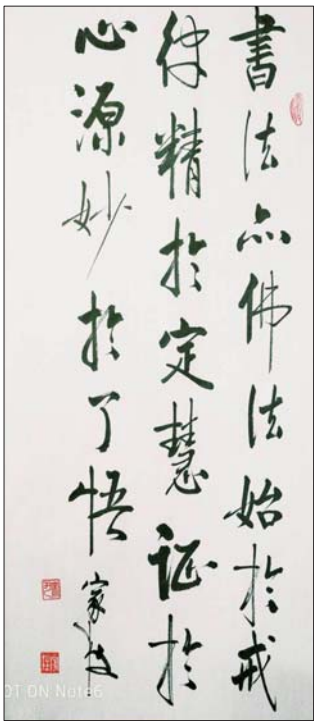 書法亦佛法始於戒
律精於定慧证於
心源妙於了悟
家
OT ON Note6